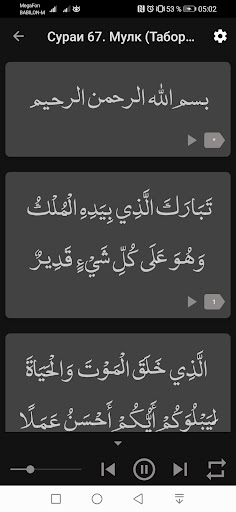 MegaFon
BABILON-M
53 % 05:02
Сураи 67. Мулк (Табор...
بسم الله الرحمن الرحيم
تَبَارَكَ الَّذِي بِيَدِهِ الْمُلْكُ
وَهُوَ عَلَى كُلِّ شَيْءٍ قَدِيرٌ
1
الَّذِي خَلَقَ الْمَوْتَ وَالْحَيَاةَ
لِيَبْلُوَكُمْ أَيُّكُمْ أَحْسَنُ عَمَلًا